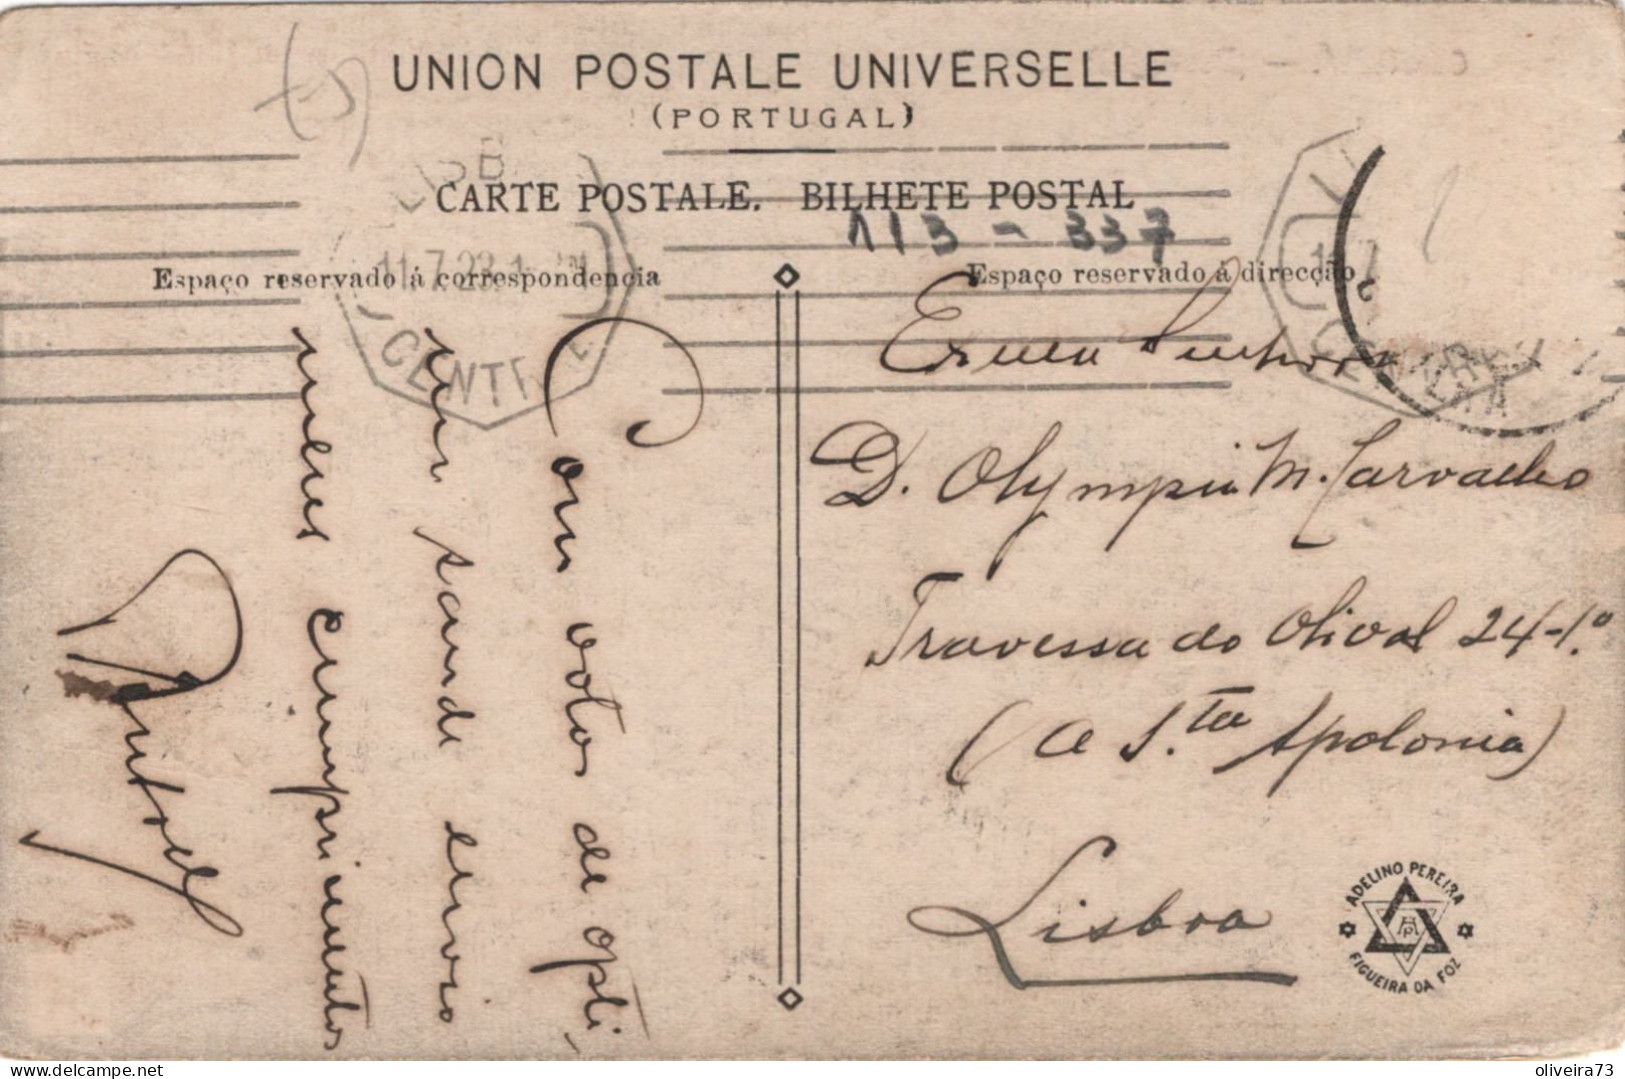 UNION POSTALE UNIVERSELLE
(PORTUGAL)
CARTE POSTALE. BILHETE POSTAL
113-337
Espaço reservado á correspondencia
Espaço reservado á direcção
LISB
11.7.23
CENTRAL
CENTRAL
Com votos de opti
ma saude envio
meus cumprimentos
Exma Senhora
D. Olympia M. Carvalho
Travessa do Olival 24-1.º
(a S.ta Apolonia)
Lisboa
ADELINO PEREIRA
AP
FIGUEIRA DA FOZ
oliveira73